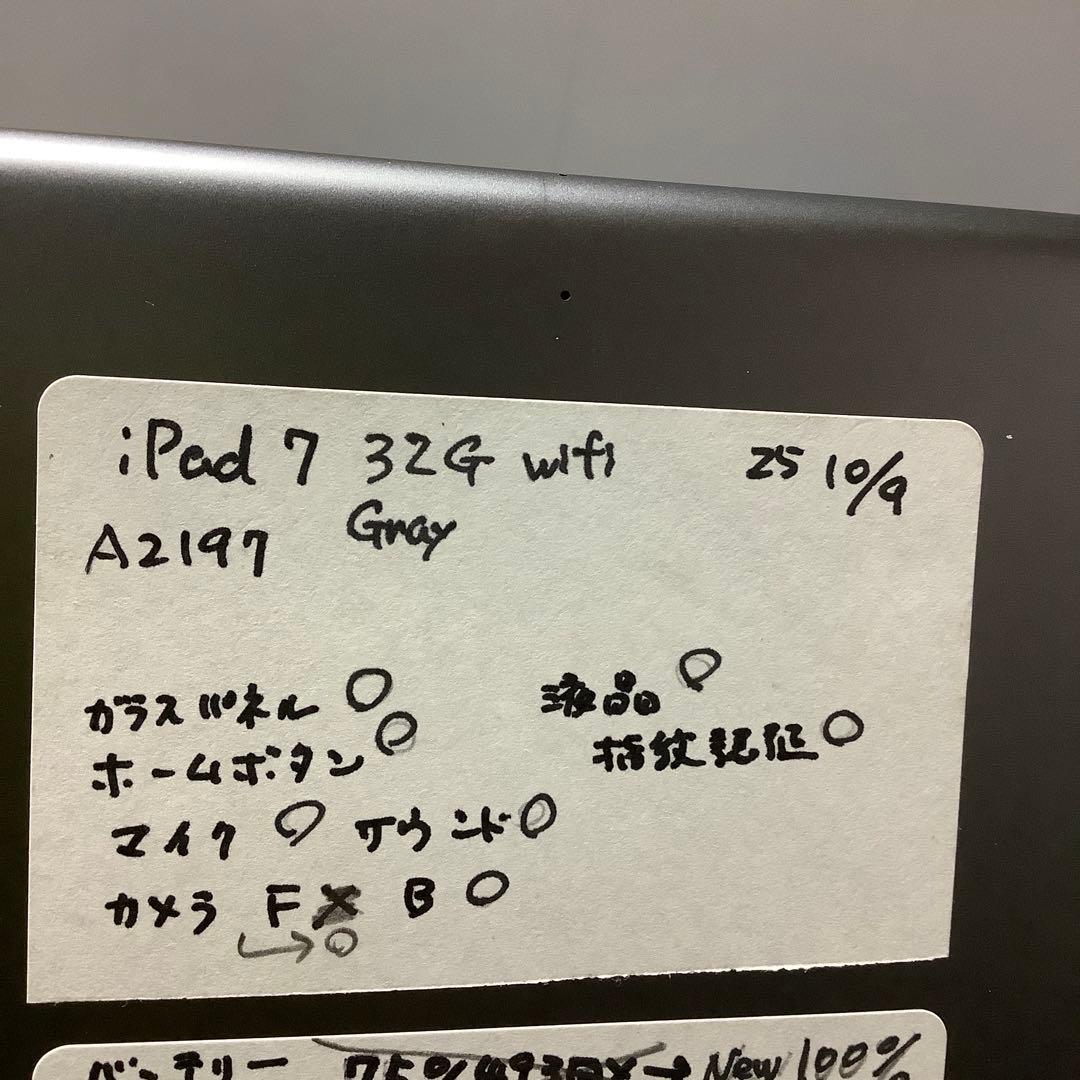 iPad 7 32G wifi 25 10/9
A2197 Gray
ガラスパネル ○ 液晶 ○
ホームボタン ○ 指紋認証 ○
マイク ○ サウンド ○
カメラ F × B ○
→ ○
バッテリー 75% 493回 → New 100%